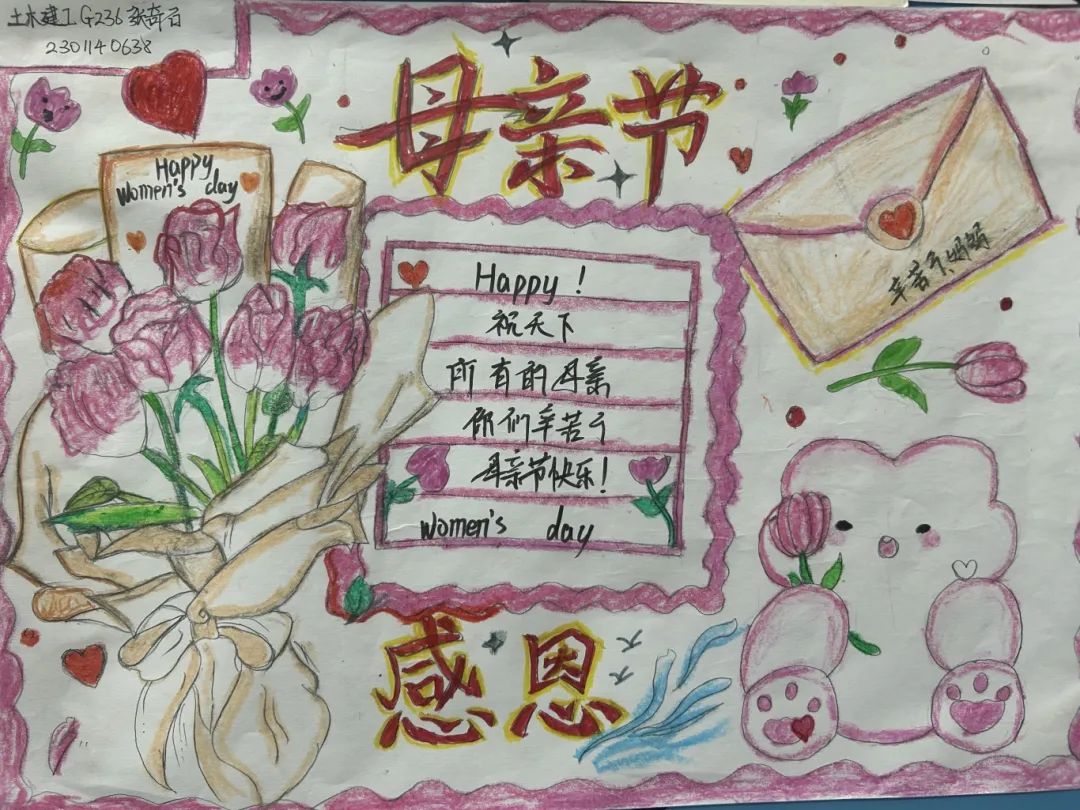 土木建工G236张奇石
2301140638
母亲节
Happy
Women's day
辛苦了,妈妈
Happy!
祝天下
所有的母亲
你们辛苦了
母亲节快乐!
women's day
感恩